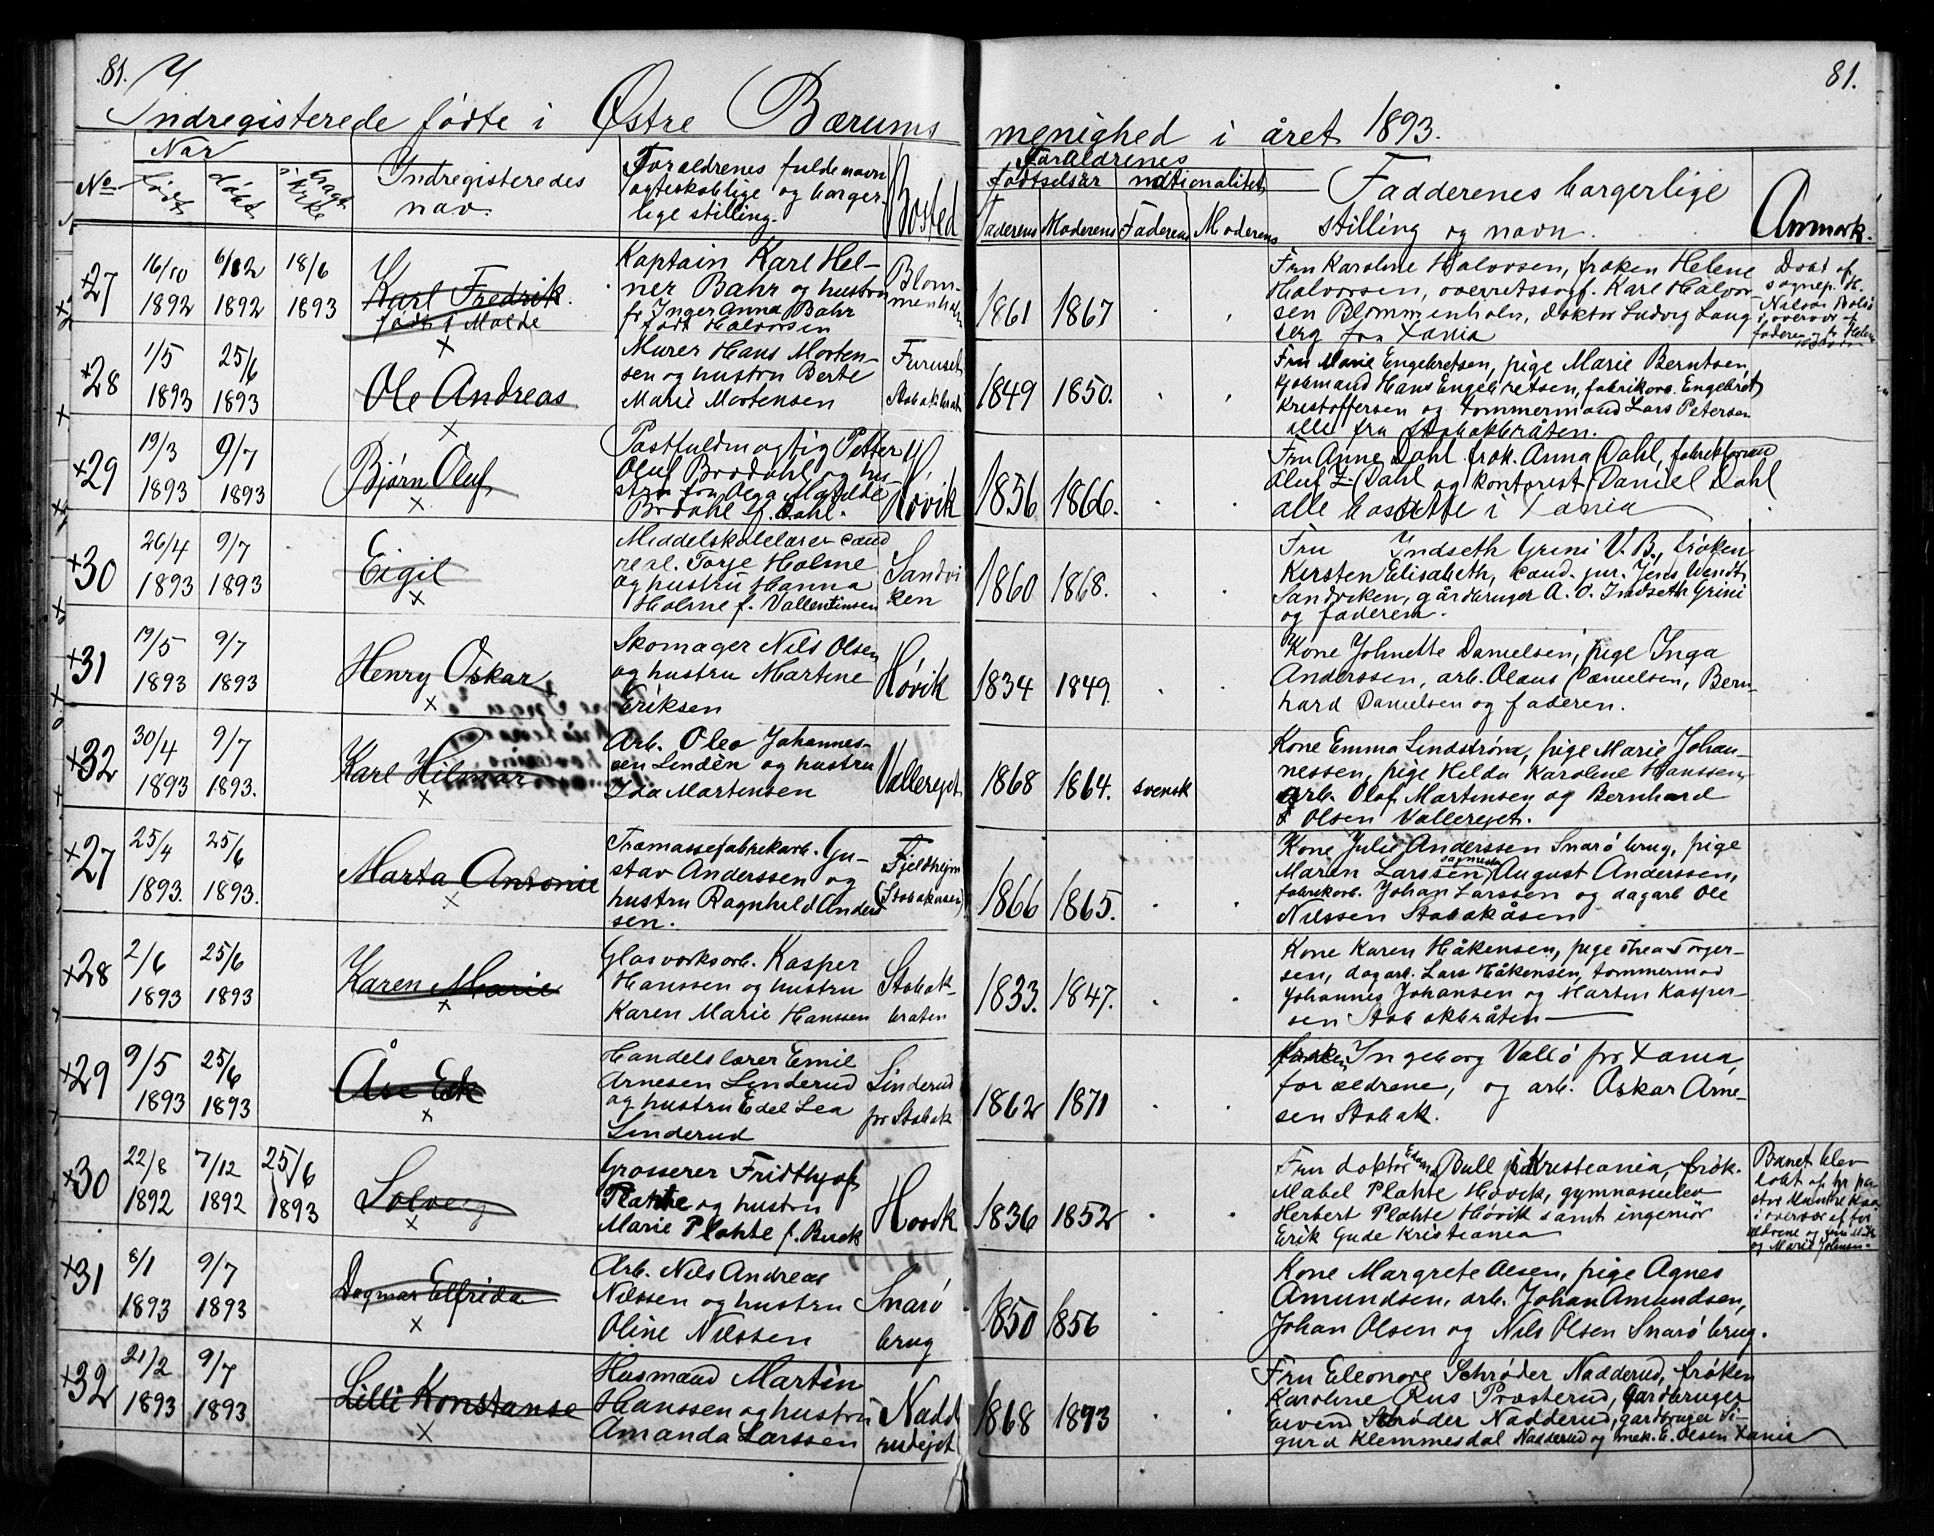 81.
81.
Indregisterede fødte i Østre Bærums menighed i året 1893.
No
Når
født
døbt
bragt i kirke
Indregisteredes navn.
Forældrenes fulde navn
ægteskablige og borger-
lige stilling.
Bosted
Forældrenes
fødselsår
nationalitet
Faderens
Moderens
Faderens
Moderens
Fadderenes borgerlige
stilling og navn.
Anmærk.
27
16/10 1892
6/12 1892
18/6 1893
Karl Fredrik.
født i Molde
Kaptain Karl Hel-
ner Bahr og hustru
fr Inger Anna Bahr
født Halvorsen
Blom-
menholm
1861
1867
Fru Karoline Halvorsen, frøken Helene
Halvorsen, overretssagf. Karl Halvor
sen Blommenholm, doktor Ludvig Laug
berg fra Xania
Døbt af
sognep. H.
Nilsen
i overvær af
faderen og fr Helene
28
1/5 1893
25/6 1893
Ole Andreas
Murer Hans Morten-
sen og hustru Berte
Marie Mortensen
Furuset
Stabækbråt
1849
1850.
Fru Marie Engebretsen, pige Marie Berntsen,
Hans Engebretsen, fabrikarb. Engebret
Kristoffersen og tømmermand Lars Petersen
alle fra Stabækbråten.
29
19/3 1893
9/7 1893
Bjørn Oluf
Postfuldmægtig Petter
Oluf Brodahl og hu-
stru fru Olga Matilde
Brodahl f. Dahl.
Høvik
1856
1866.
Fru Anne Dahl frøk. Anna Dahl, fabrikformand
Oluf Z. Dahl og kontorist Daniel Dahl
alle bosatte i Xania
30
26/4 1893
9/7 1893
Eigil
Middelskolelærer cand
real. Torje Holme
og hustru Hanna
Holme f. Vallentinsen
Sandvi
ken
1860
1868.
Fru Indseth Grini V. B., frøken
Kirsten Elisabeth, cand. jur. Jens Wendt
Sandviken, gårdbruger A. O. Indseth Grini
og faderen.
31
19/5 1893
9/7 1893
Henry Oskar
Skomager Nils Olsen
og hustru Martine
Eriksen
Høvik
1834
1849.
Kone Johnette Danielsen, pige Inga
Anderssen, arb. Olaus Danielsen, Bern-
hard Danielsen og faderen.
32
30/4 1893
9/7 1893.
Karl Hilmar
Arb. Oleo Johannes-
sen Lindèn og hustru
Ida Martensen
Vallerejet.
1868
1864.
svensk
Kone Emma Lindstrøm, pige Marie Johan-
nessen, pige Hilda Karoline Hanssen,
arb. Olaf Martinsen og Bernhard
Olsen Vallerejet.
27
25/4 1893.
25/6 1893.
Marta Antonie
Træmassefabrikarb. Gu-
stav Anderssen og
hustru Ragnhild Anders
sen.
Fjeldhejm
(Stabækåsen)
1866
1865.
Kone Julie Anderssen Snarø brug, pige
Maren Larssen, August Anderssen,
fabrikarb. Johan Larssen og dagarb Ole
Nilssen Stabækåsen
28
2/6 1893
25/6 1893
Karen Marie
Glasværksarb. Kasper
Hanssen og hustru
Karen Marie Hanssen
Stabæk-
bråten
1833.
1847.
Kone Karen Håkensen, pige Thea Torger-
sen, dagarb. Lars Håkensen, tømmermand
Johannes Johansen og Martin Kasper-
sen Stabækbråten
29
9/5 1893
25/6 1893
Åse Eek
Handelslærer Emil
Arnesen Linderud
og hustru Edel Lea
Linderud
Linderud
pr Stabæk
1862
1871
frøken Ingeborg Vallø fr. Xania,
forældrene, og arb. Oskar Arne-
sen Stabæk.
30
22/8 1892
7/12 1892
25/6 1893
Solveig
Grosserer Fridthjof
Plahte og hustru
Marie Plahte f. Buck
Høvik
1836
1852
Fru doktor Edvard Bull i Kristiania, frøk.
Mabel Plahte Høvik, gymnasielev
Herbert Plahte Høvik samt ingeniør
Erik Gude Kristiania
Barnet blev
døbt af hr pa-
stor Munthe Kaas
i overvær af for
ældrene og
og Marie Johnsen.
31
8/1 1893
9/7 1893
Dagmar Elfrida
Arb. Nils Andreas
Nilssen og hustru
Oline Nilssen
Snarø
brug
1850
1856
Kone Margrete Olsen, pige Agnes
Amundsen, arb. Johan Amundsen,
Johan Olsen og Nils Olsen Snarø brug.
32
21/2 1893
9/7 1893
Lilli Konstanse
Husmand Martin
Hanssen og hustru
Amanda Larssen
Nadde
rudejet
1868
1873
Fru Eleonore Schrøder Nadderud, frøken
Karoline Rus Presterud, gårdbruger
Eivind Schrøder Nadderud, gårdbruger Si-
gurd Klemmesdal Nadderud og mek. E. Olsen Xania